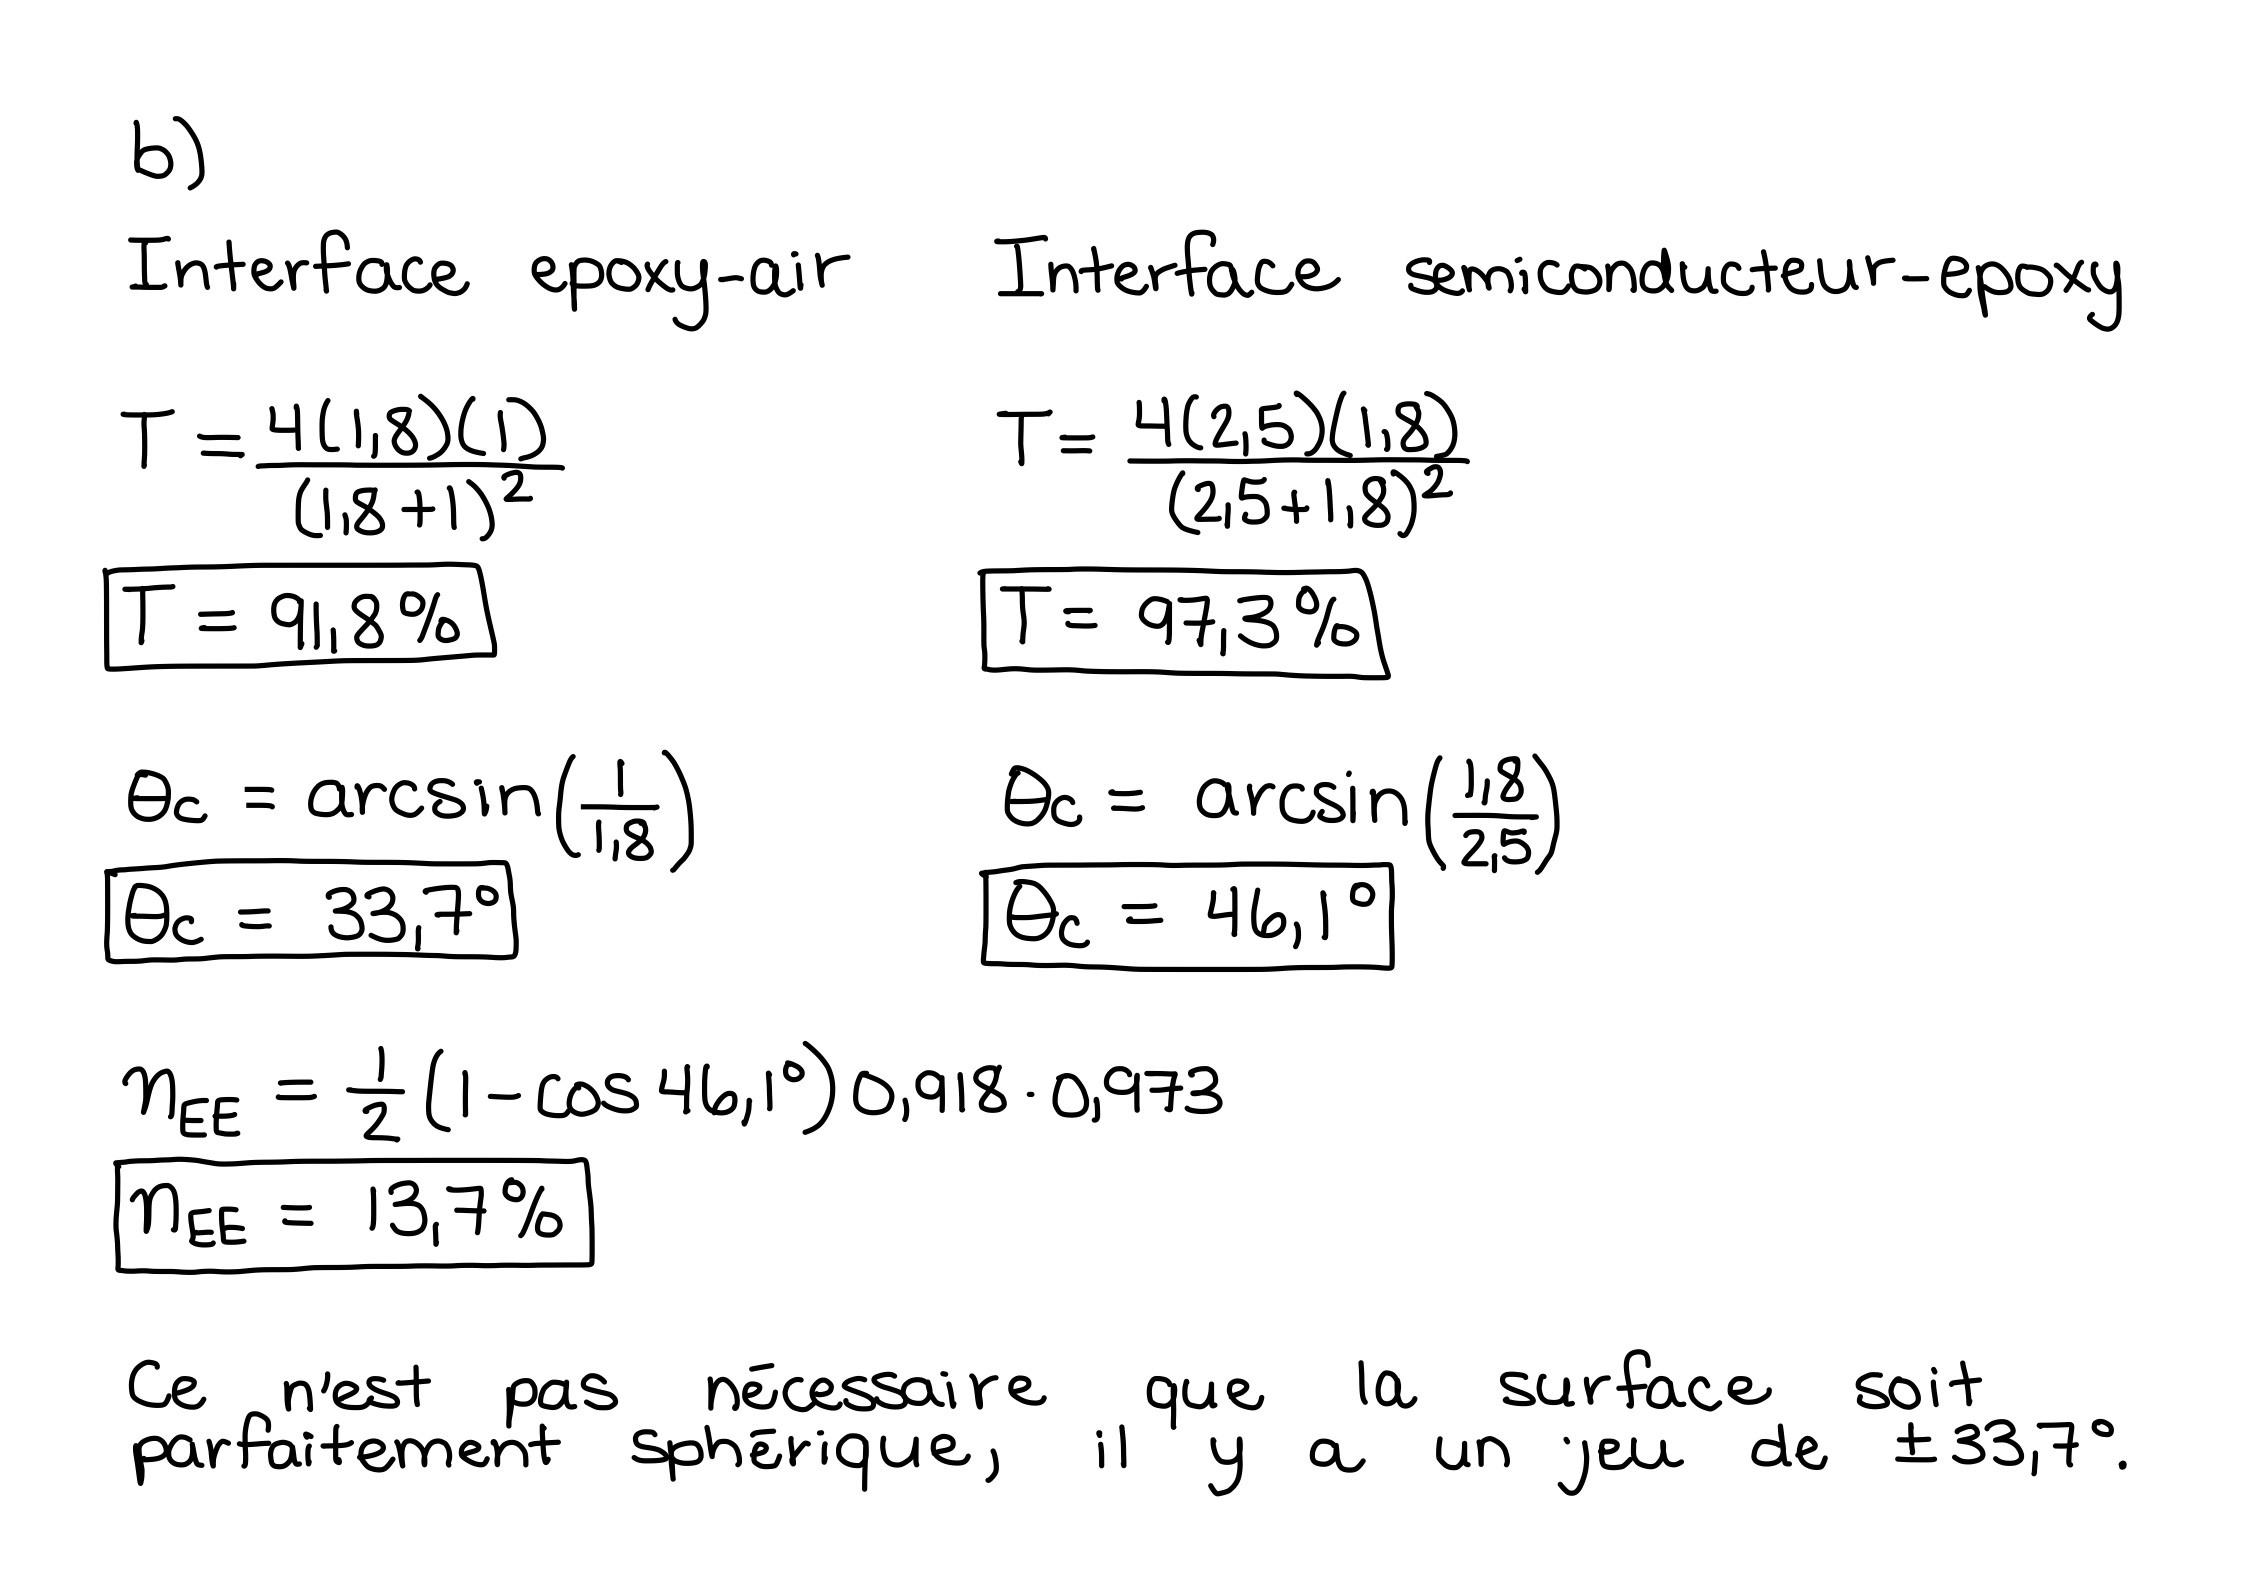 b)
Interface epoxy-air
T = 4(1,8)(1) / (1,8+1)²
T = 91,8%
θc = arcsin(1/1,8)
θc = 33,7°
Interface semiconducteur-epoxy
T = 4(2,5)(1,8) / (2,5+1,8)²
T = 97,3%
θc = arcsin(1,8/2,5)
θc = 46,1°
ηEE = 1/2 (1-cos 46,1°) 0,918 · 0,973
ηEE = 13,7%
Ce n'est pas nécessaire que la surface soit
parfaitement sphérique, il y a un jeu de ±33,7°.